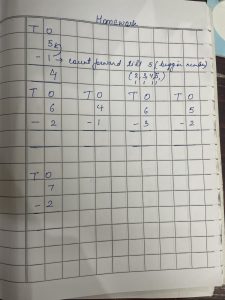 Homework
T O
5
- 1 → count forward till 5 (bigger number)
4 (2, 3, 4, 5,)
T O T O T O T O
6 4 6 5
- 2 - 1 - 3 - 2
T O
7
- 2